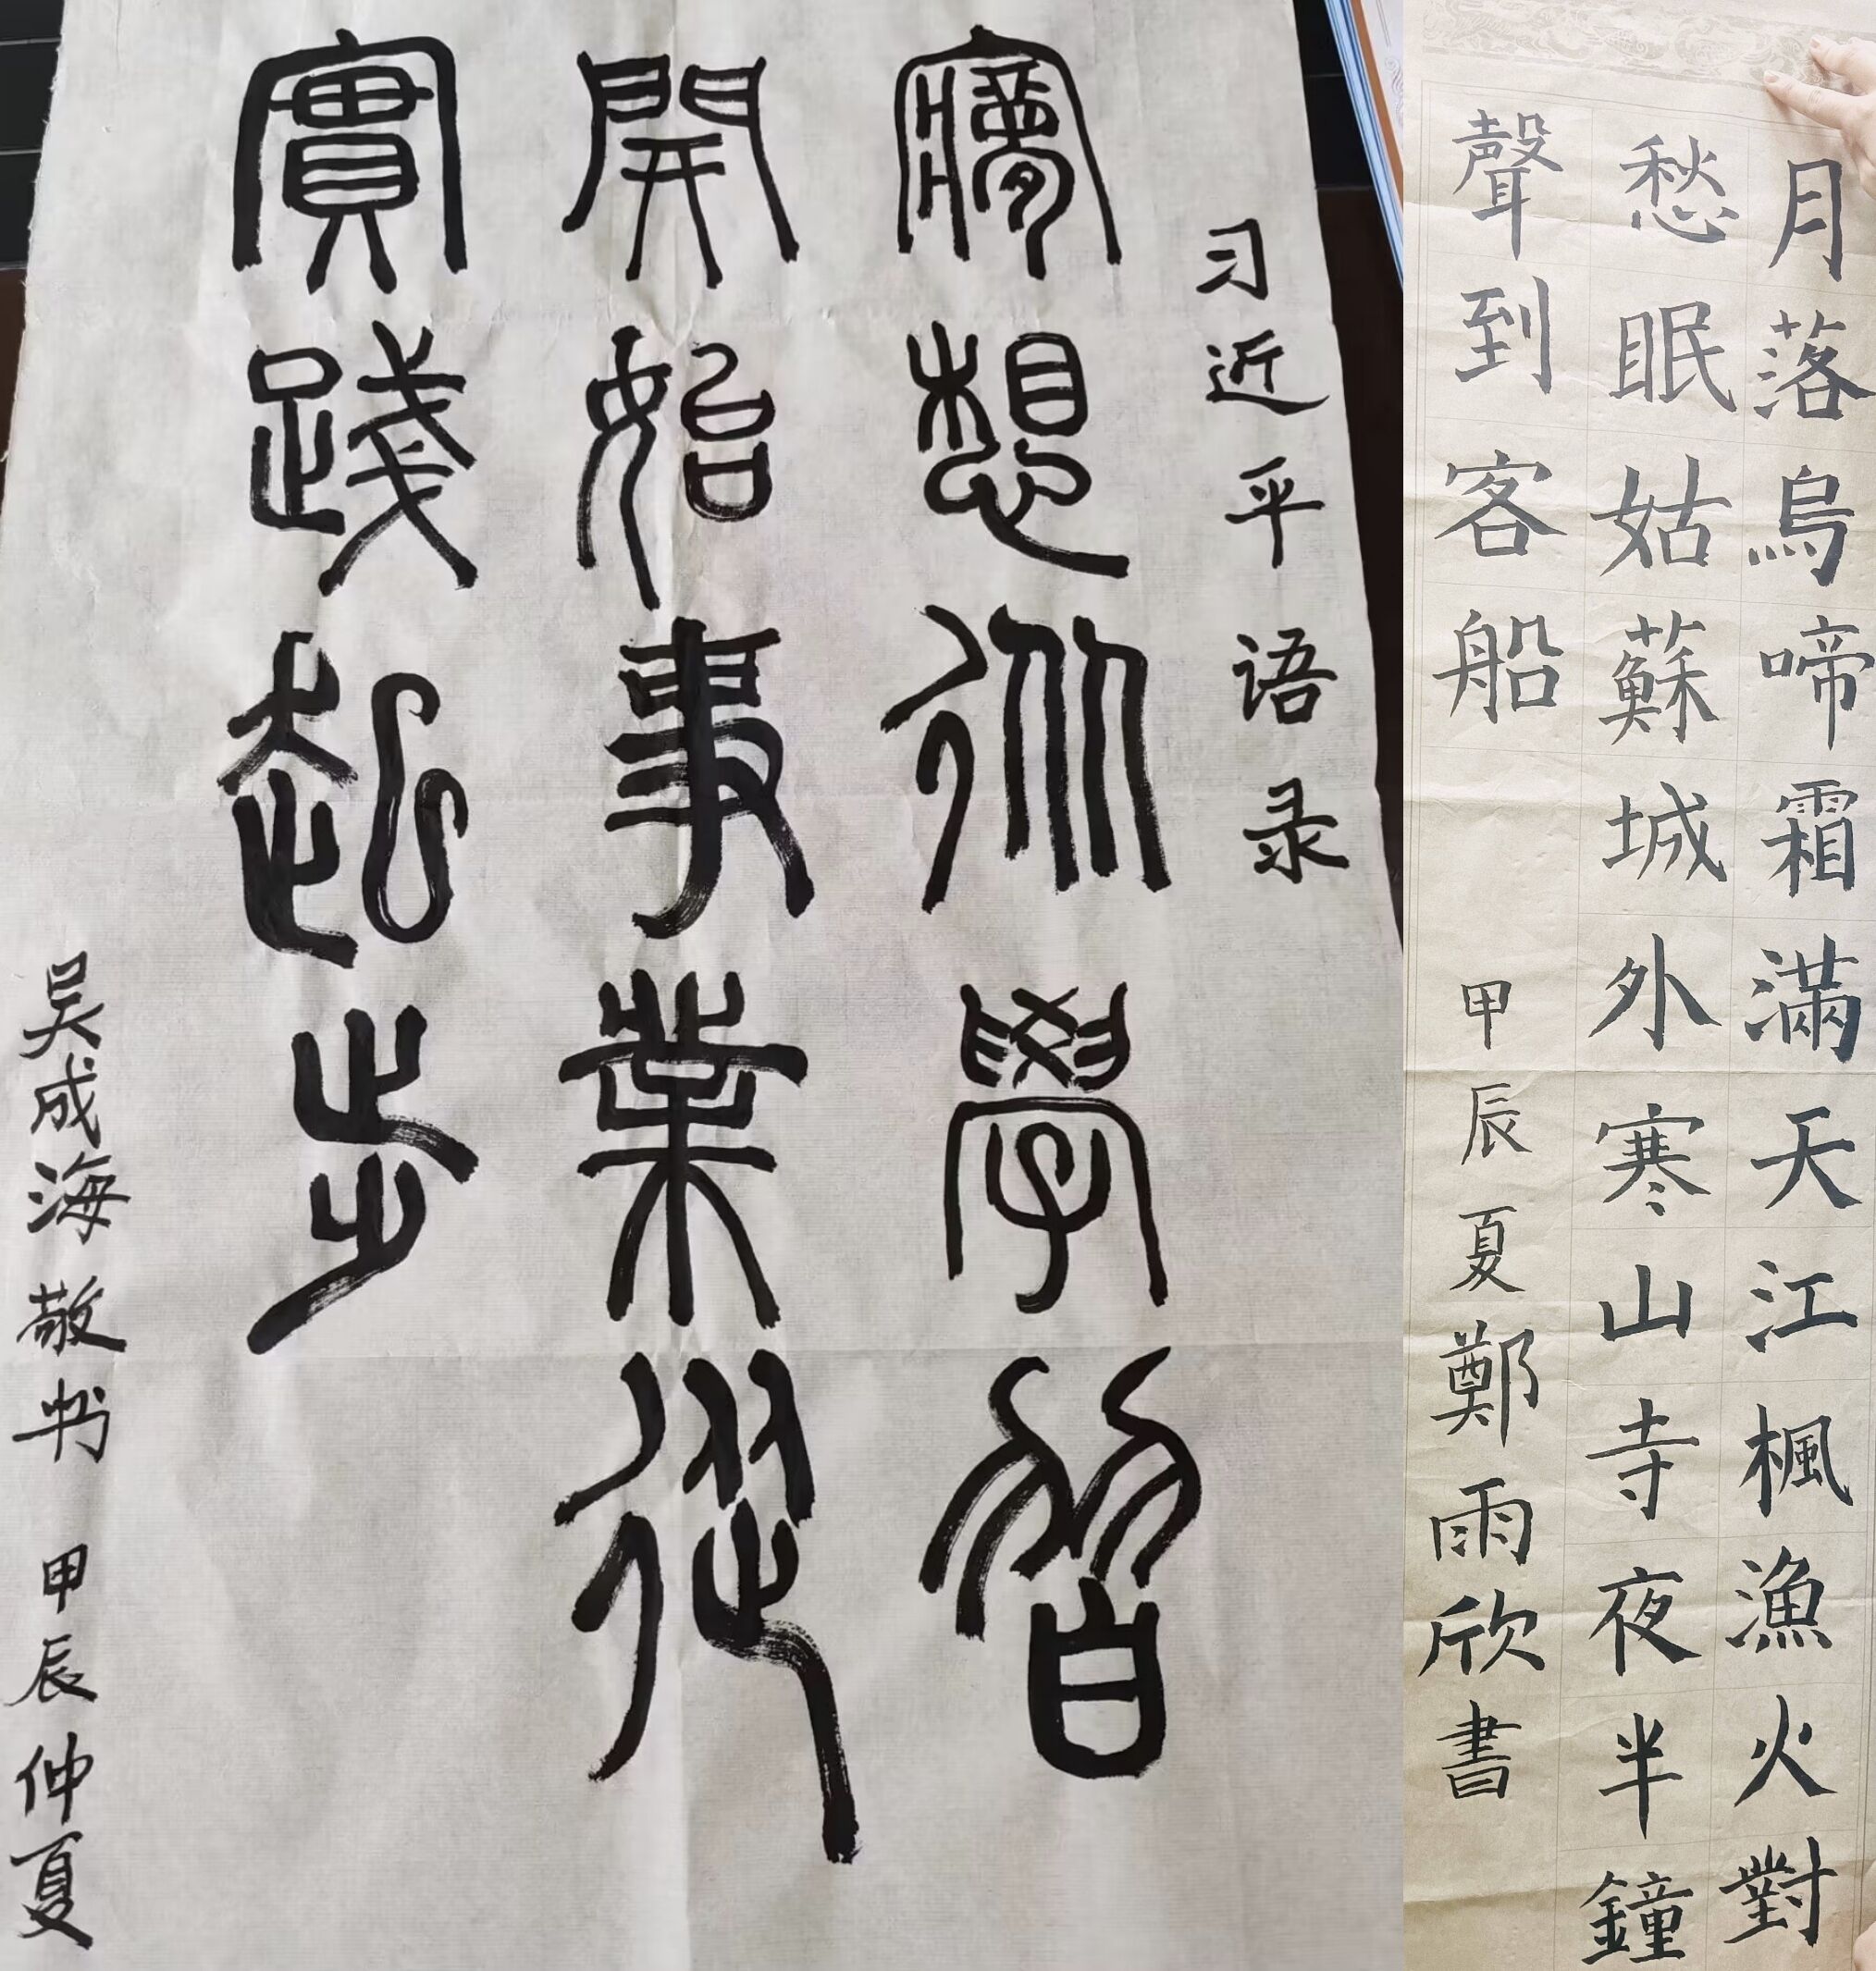 习近平语录
夢想從學習
開始事業從
實踐起步
吴成海敬书 甲辰仲夏
月落烏啼霜滿天江楓漁火對
愁眠姑蘇城外寒山寺夜半鐘
聲到客船 甲辰夏鄭雨欣書